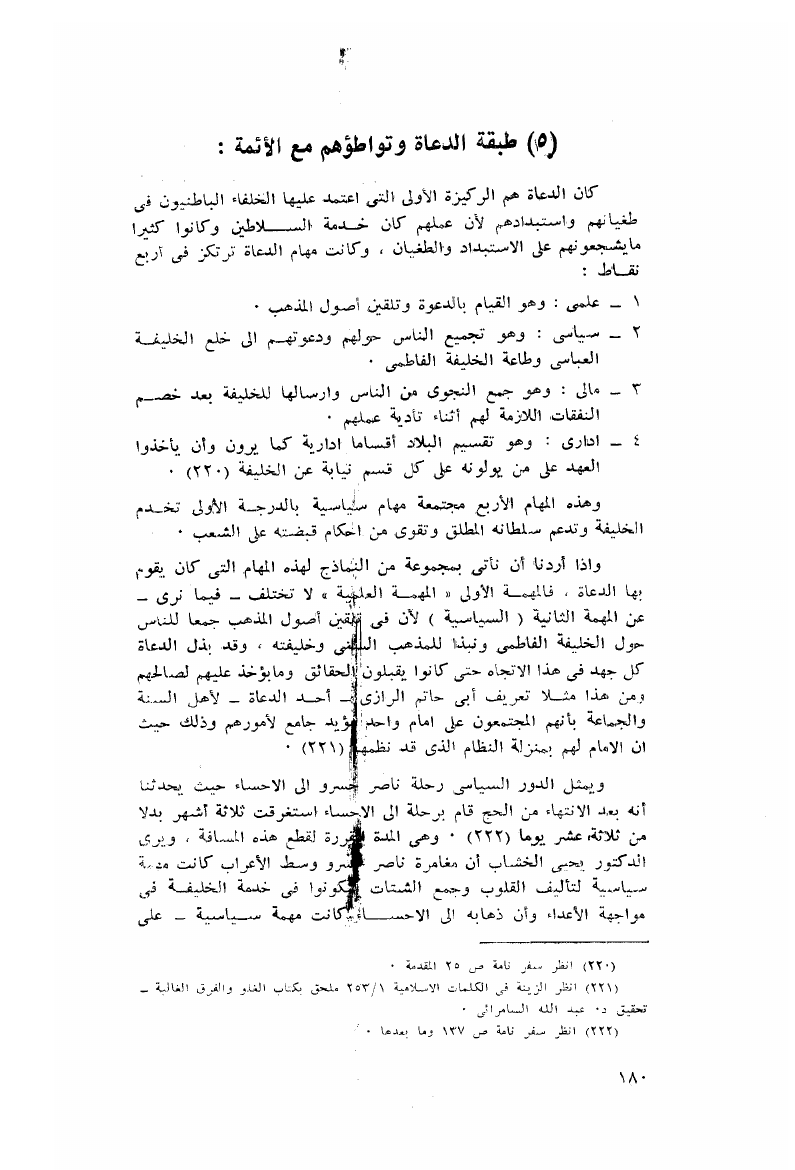 (٥) طبقة الدعاة وتواطؤهم مع الأئمة :
كان الدعاة هم الركيزة الأولى التى اعتمد عليها الخلفاء الباطنيون فى
طغيانهم واستبدادهم لأن عملهم كان خدمة السلاطين وكانوا كثيرا
مايشجعونهم على الاستبداد والطغيان ، وكانت مهام الدعاة ترتكز فى أربع
نقاط :
١ ـ علمى : وهو القيام بالدعوة وتلقين أصول المذهب ٠
٢ ـ سياسى : وهو تجميع الناس حولهم ودعوتهم الى خلع الخليفة
العباسى وطاعة الخليفة الفاطمى ٠
٣ ـ مالى : وهو جمع النجوى من الناس وارسالها للخليفة بعد خصم
النفقات اللازمة لهم أثناء تأدية عملهم ٠
٤ ـ ادارى : وهو تقسيم البلاد أقساما ادارية كما يرون وأن يأخذوا
العهد على من يولونه على كل قسم نيابة عن الخليفة (٢٢٠) ٠
وهذه المهام الأربع مجتمعة مهام سياسية بالدرجة الأولى تخدم
الخليفة وتدعم سلطانه المطلق وتقوى من احكام قبضته على الشعب ٠
واذا أردنا أن نأتى بمجموعة من النماذج لهذه المهام التى كان يقوم
بها الدعاة ، فالمهمة الأولى « المهمة العلمية » لا تختلف ـ فيما نرى ـ
عن المهمة الثانية ( السياسية ) لأن فى تلقين أصول المذهب جمعا للناس
حول الخليفة الفاطمى ونبذا للمذهب السنى وخليفته ، وقد بذل الدعاة
كل جهد فى هذا الاتجاه حتى كانوا يقبلون الحقائق ومايؤخذ عليهم لصالحهم
ومن هذا مثلا تعريف أبى حاتم الرازى ـ أحد الدعاة ـ لأهل السنة
والجماعة بأنهم المجتمعون على امام واحد جامع لأمورهم وذلك حيث
ان الامام لهم بمنزلة النظام الذى قد نظمهم (٢٢١) ٠
ويمثل الدور السياسى رحلة ناصر خسرو الى الاحساء حيث يحدثنا
أنه بعد الانتهاء من الحج قام برحلة الى الاحساء استغرقت ثلاثة أشهر بدلا
من ثلاثة عشر يوما (٢٢٢) ٠ وهى المدة المقررة لقطع هذه المسافة ، ويرى
الدكتور يحيى الخشاب أن مغامرة ناصر خسرو وسط الأعراب كانت مهمة
سياسية لتأليف القلوب وجمع الشتات ليكونوا فى خدمة الخليفة فى
مواجهة الأعداء وأن ذهابه الى الاحساء كانت مهمة سياسية ـ على
(٢٢٠) انظر سفر نامة ص ٢٥ المقدمة ٠
(٢٢١) انظر الزينة فى الكلمات الاسلامية ٢٥٣/١ ملحق بكتاب الغلو والفرق الغالية ـ
تحقيق د٠ عبد الله السامرائى ٠
(٢٢٢) انظر سفر نامة ص ١٣٧ وما بعدها ٠
١٨٠